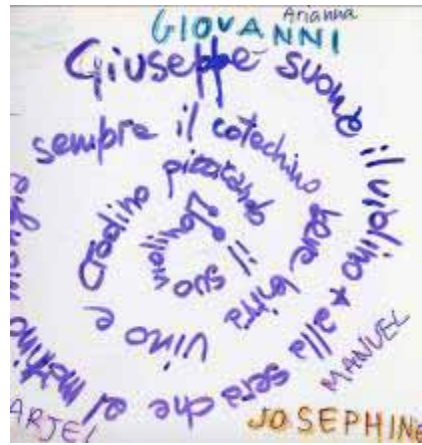 Arianna
GIOVANNI
Giuseppe suona il violino + alla sera che al mattino
sempre il cotechino beve birra vino e Crodino pizzicando il suo violino
MANUEL
JOSEPHINE
ARJEL